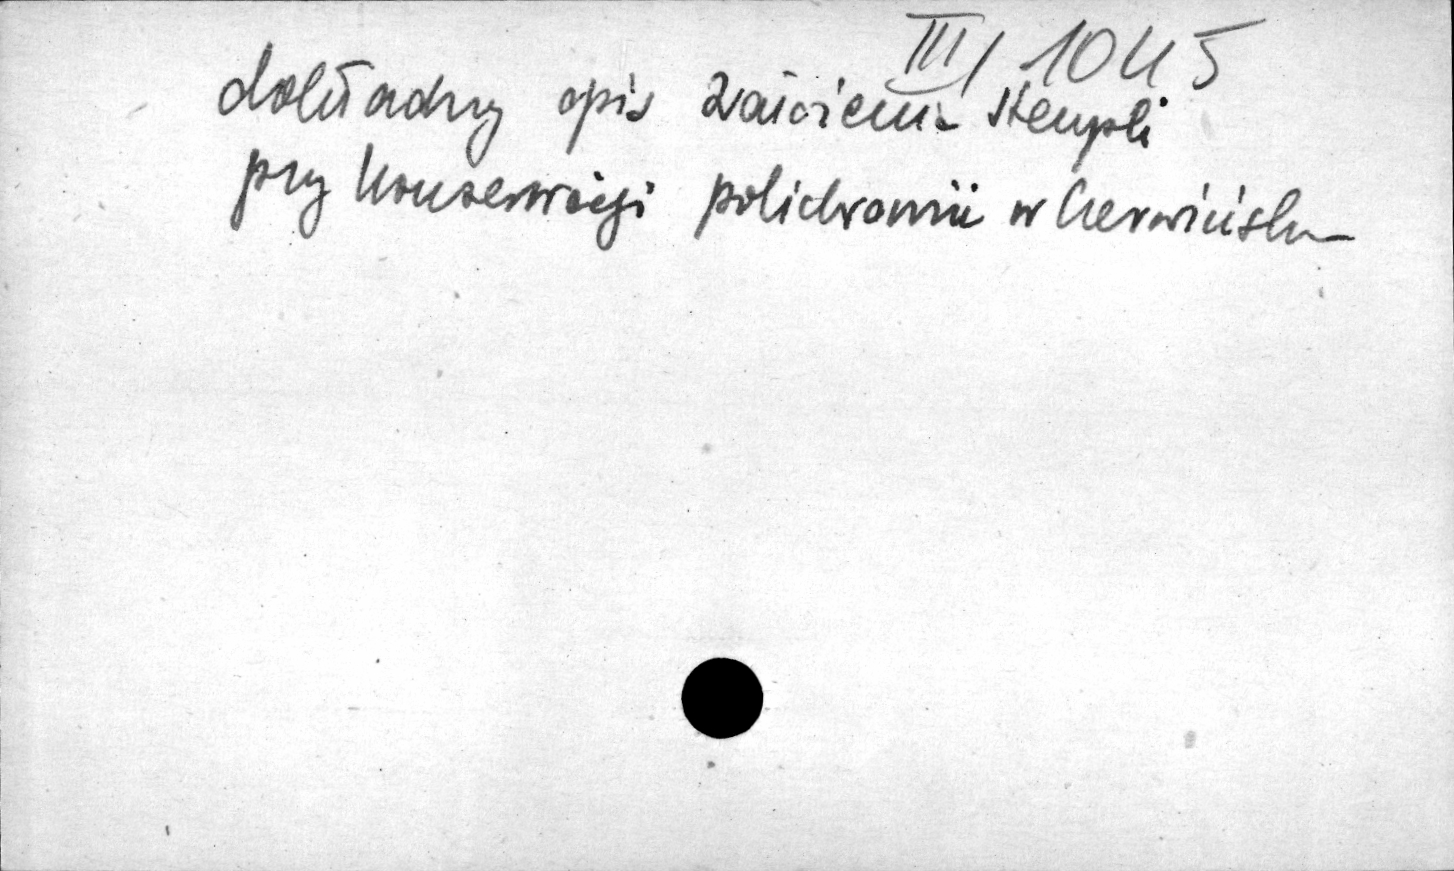 III/1045
dokładny opis założenia stempli
przy konserwacji polichromii w Czerwińsku